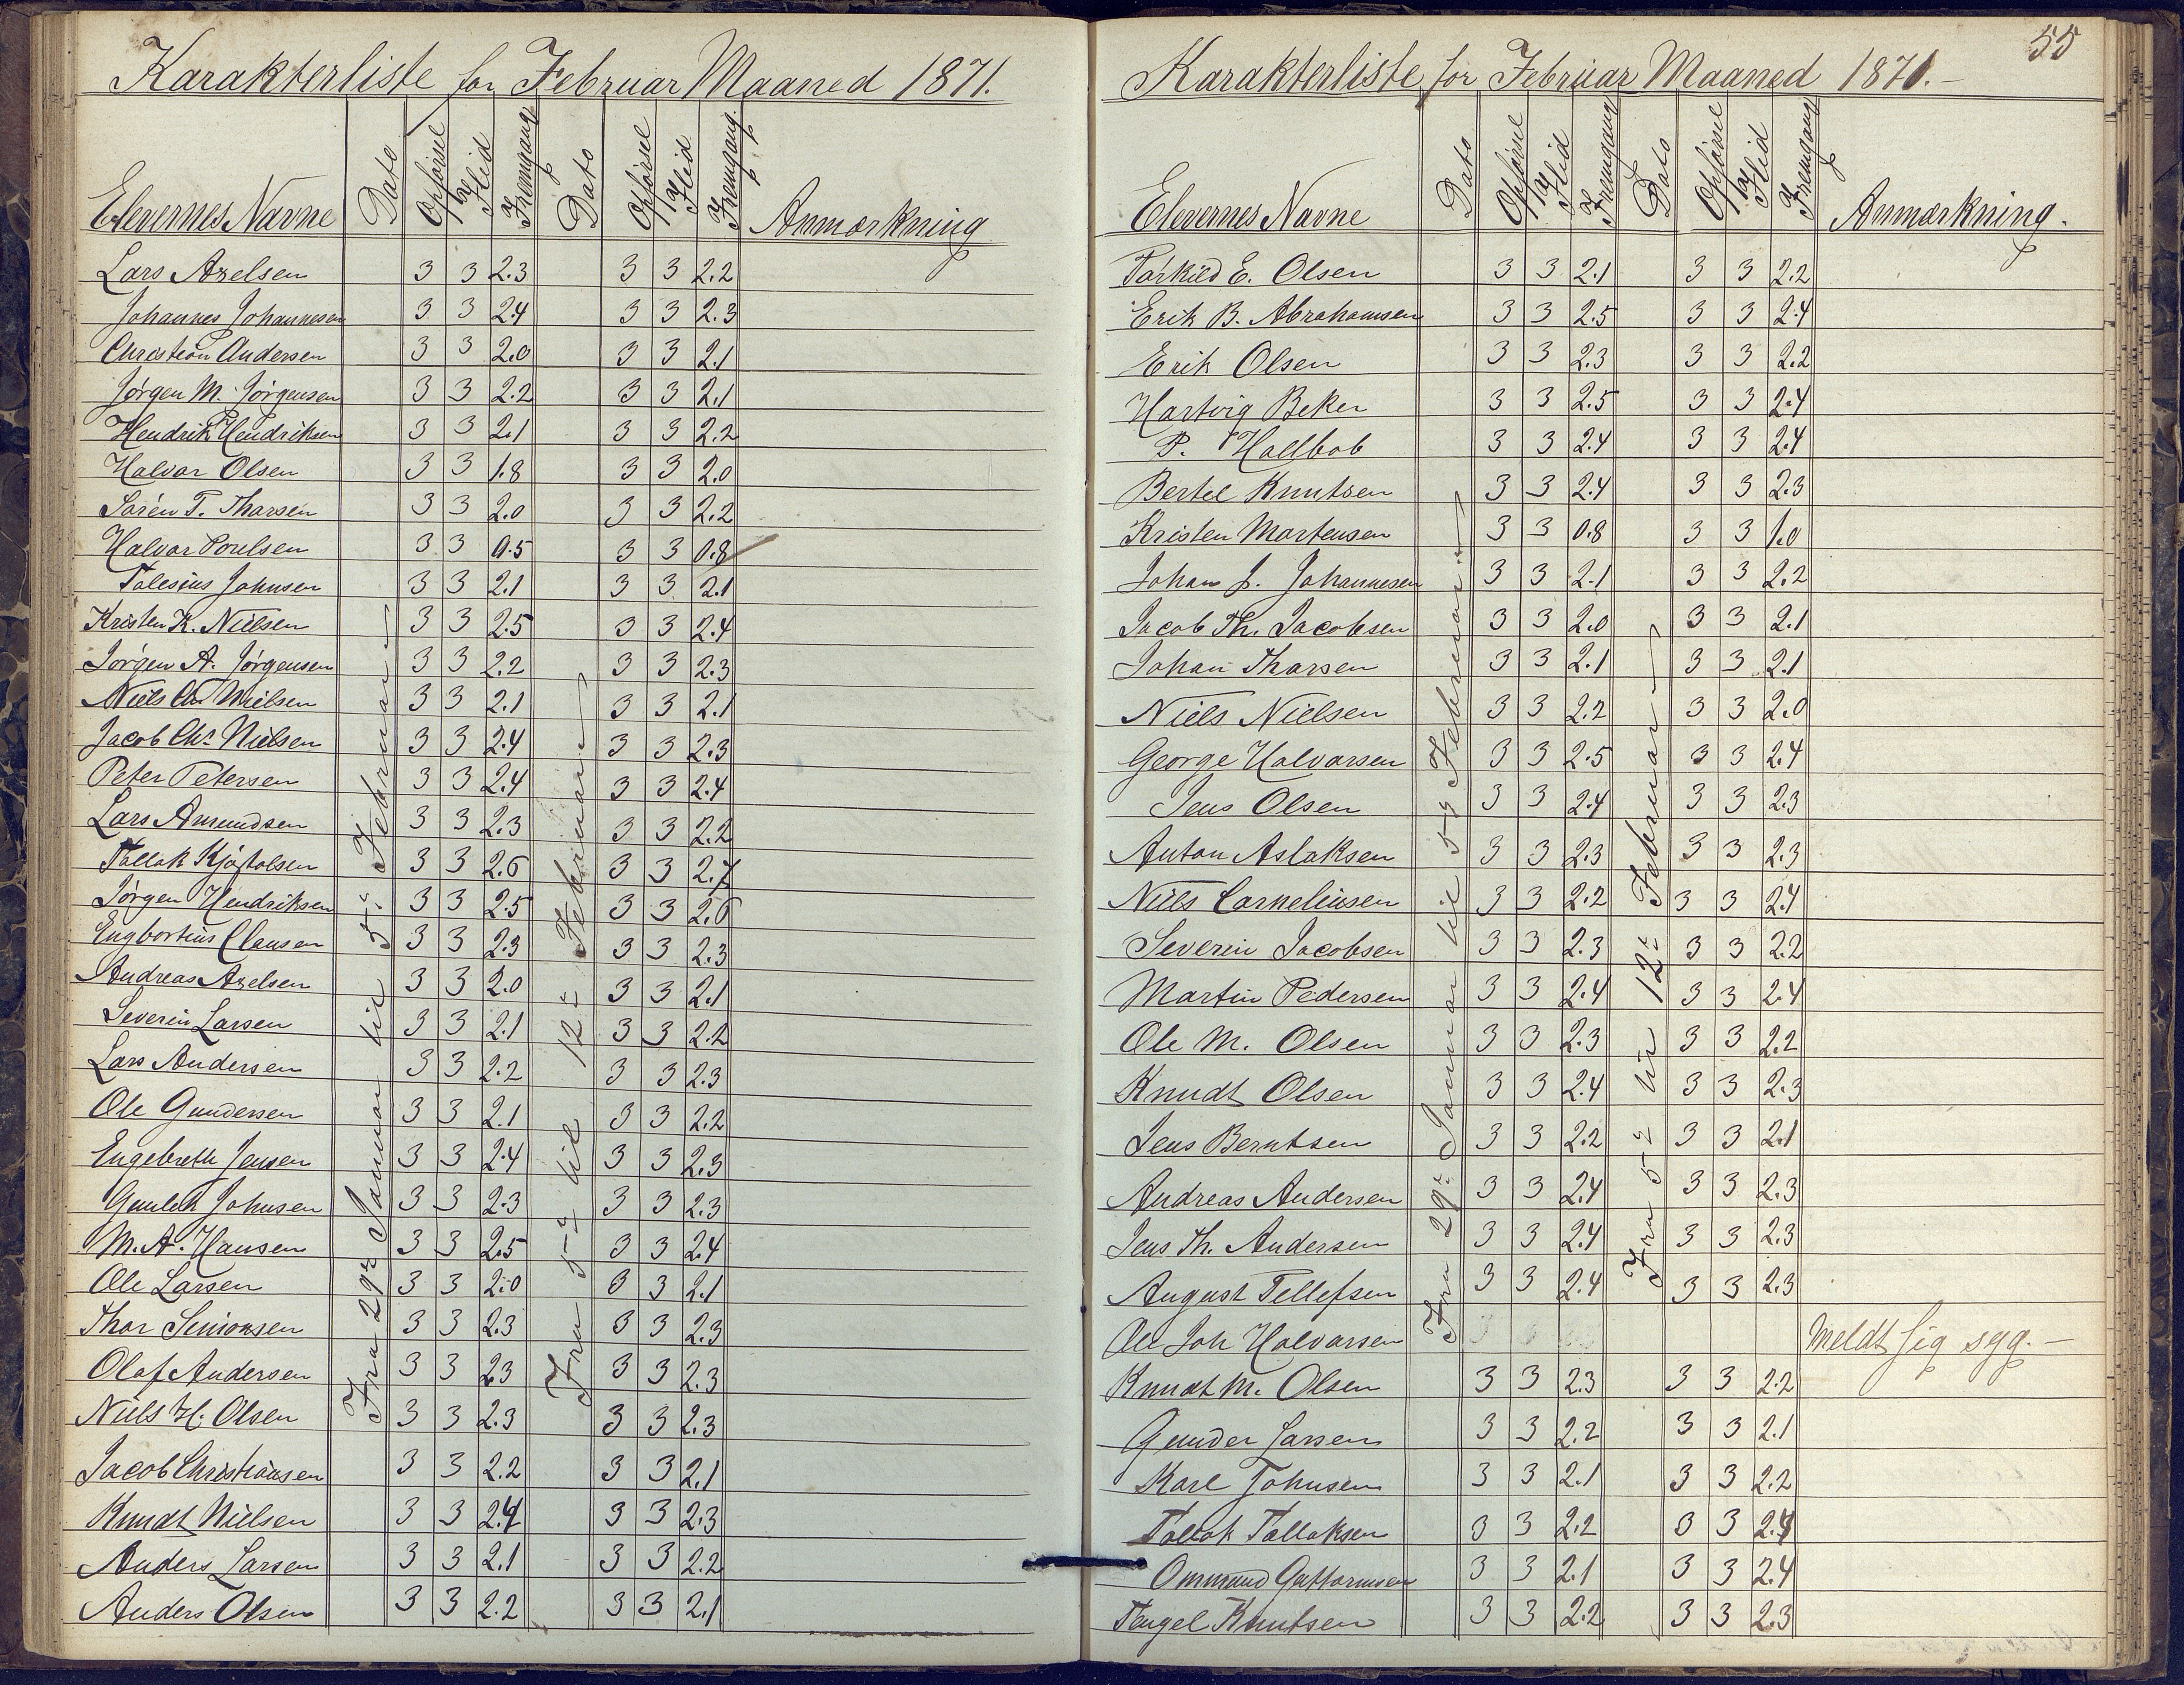 Karakterliste for Februar Maaned 1871.
Elevernes Navne Dato Opførsel Flid Fremgang Dato Opførsel Flid Fremgang Anmærkning
Fra 29de Januar til 5te Februar
Fra 5te til 12te Februar
Lars Axelsen 3 3 2.3 3 3 2.2
Johannes Johannesen 3 3 2.4 3 3 2.3
Christian Andersen 3 3 2.0 3 3 2.1
Jørgen M. Jørgensen 3 3 2.2 3 3 2.1
Hendrik Hendriksen 3 3 2.1 3 3 2.2
Halvor Olsen 3 3 1.8 3 3 2.0
Søren T. Thorsen 3 3 2.0 3 3 2.2
Halvor Poulsen 3 3 0.5 3 3 0.8
Johnsen 3 3 2.1 3 3 2.1
Kristen K. Nielsen 3 3 2.5 3 3 2.4
Jørgen A. Jørgensen 3 3 2.2 3 3 2.3
Niels Chr Nielsen 3 3 2.1 3 3 2.1
Jacob Chr Nielsen 3 3 2.4 3 3 2.3
Peter Petersen 3 3 2.4 3 3 2.4
Lars Amundsen 3 3 2.3 3 3 2.2
Tallak Kjøstolsen 3 3 2.6 3 3 2.7
Jørgen Hendriksen 3 3 2.5 3 3 2.6
Engbortius Clausen 3 3 2.3 3 3 2.3
Andreas Axelsen 3 3 2.0 3 3 2.1
Severin Larsen 3 3 2.1 3 3 2.2
Lars Andersen 3 3 2.2 3 3 2.3
Ole Gundersen 3 3 2.1 3 3 2.2
Engebreth Jensen 3 3 2.4 3 3 2.3
Gunleh Johnsen 3 3 2.3 3 3 2.3
M. A. Hansen 3 3 2.5 3 3 2.4
Ole Larsen 3 3 2.0 3 3 2.1
Thor Simonsen 3 3 2.3 3 3 2.3
Olaf Andersen 3 3 2.3 3 3 2.3
Niels H. Olsen 3 3 2.3 3 3 2.3
Jacob Christiansen 3 3 2.2 3 3 2.1
Knudt Nielsen 3 3 2.4 3 3 2.3
Anders Larsen 3 3 2.1 3 3 2.2
Anders Olsen 3 3 2.2 3 3 2.1
55
Karakterliste for Februar Maaned 1871.-
Elevernes Navne Dato Opførsel Flid Fremgang Dato Opførsel Flid Fremgang Anmærkning.
Fra 29de Januar til 5te Februar
Fra 5te til 12te Februar
Tørkild E. Olsen 3 3 2.1 3 3 2.2
Erik B. Abrahamsen 3 3 2.5 3 3 2.4
Erik Olsen 3 3 2.3 3 3 2.2
Hartvig Beker 3 3 2.5 3 3 2.4
P. Hallbob 3 3 2.4 3 3 2.4
Bertel Knutsen 3 3 2.4 3 3 2.3
Kristen Mortensen 3 3 0.8 3 3 1.0
Johan J. Johannesen 3 3 2.1 3 3 2.2
Jacob Th. Jacobsen 3 3 2.0 3 3 2.1
Johan Thorsen 3 3 2.1 3 3 2.1
Niels Nielsen 3 3 2.2 3 3 2.0
George Halvorsen 3 3 2.5 3 3 2.4
Jens Olsen 3 3 2.4 3 3 2.3
Anton Aslaksen 3 3 2.3 3 3 2.3
Niels Corneliusen 3 3 2.2 3 3 2.4
Severin Jacobsen 3 3 2.3 3 3 2.2
Martin Pedersen 3 3 2.4 3 3 2.4
Ole M. Olsen 3 3 2.3 3 3 2.2
Knudt Olsen 3 3 2.4 3 3 2.3
Jens Berntsen 3 3 2.2 3 3 2.1
Andreas Andersen 3 3 2.4 3 3 2.3
Jens Th. Andersen 3 3 2.4 3 3 2.3
August Tellefsen 3 3 2.4 3 3 2.3
Ole Joh Halvorsen Meldt sig syg.-
Knudt M. Olsen 3 3 2.3 3 3 2.2
Gunder Larsen 3 3 2.2 3 3 2.1
Karl Johnsen 3 3 2.1 3 3 2.2
Tallak Tallaksen 3 3 2.2 3 3 2.4
Ommund Guttormsen 3 3 2.1 3 3 2.4
Tengel Knutsen 3 3 2.2 3 3 2.3